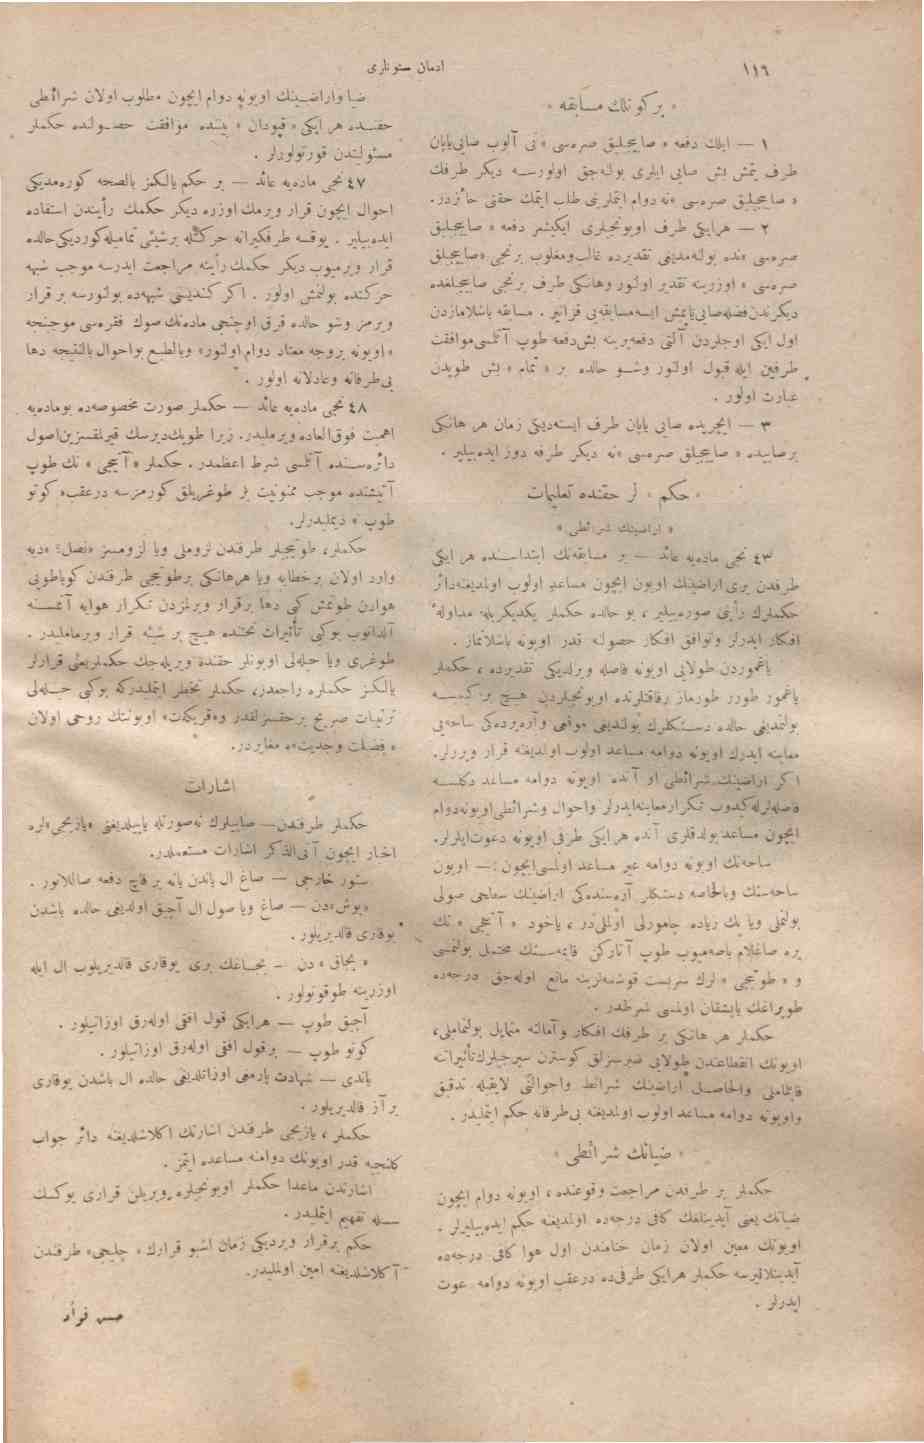 ١١٦
ادمان ستونلری
« بر كونلك مسابقه »
١ — ايلك دفعه « صاييجيلق صره‌سى » نى آلوب صايى‌ياپان
طرف يتمش بش صايى ايلرى بولنه‌جق اولورسه ديكر طرفك
« صاييجيلق صره‌سى »نه دوام ايتملرينى طلب ايتمك حقنى حائزدر.
٢ — هرايكى طرف اويونجيلرى ايكيشر دفعه « صاييجيلق
صره‌سى »نده بولنه‌مديغى تقديرده غالب‌ومغلوب برنجى «صاييجيلق
صره‌سى » اوزرينه تقدير اولنور وهانكى طرف برنجى صاييجيلغده
ديكرندن‌فضله‌صايى‌ياپمش ايسه‌مسابقه‌يى قزانير . مسابقه باشلامازدن
اول ايكى اوجلردن آلتى دفعه‌يرينه بش‌دفعه طوپ آتلمسى‌موافقت
طرفين ايله قبول اولنور وشو حالده بر « تمام » بش طوپدن
عبارت اولور .
٣ — ايچريده صايى ياپان طرف ايسته‌ديكى زمان هر هانكى
برصاييده « صاييجيلق صره‌سى »نه ديكر طرفه دور ايده‌بيلير .
« حكم » لر حقنده تعليمات
« اراضينك شرائطى »
٤٣ نجى ماده‌يه عائد — بر مسابقه‌نك ابتداسنده هر ايكى
طرفدن برى اراضينك اويون ايچون مساعد اولوب اولمديغنه‌دائر
حكملرك رأينى صوره‌بيلير ، بو حالده حكملر يكديكريله مداوله
افكار ايدرلر وتوافق افكار حصولنه قدر اويونه باشلانماز.
ياغموردن طولايى اويونه فاصله ويرلديكى تقديرده ، حكملر
ياغمور طورر طورماز رفاقتلرنده اويونجيلردن هيچ بر كيمسه
بولنمديغى حالده دستكلرك بولنديغى موقعى وآره‌يرده‌كى ساحه‌يى
معاينه ايدرك اويونه دوامه مساعد اولوب اولمديغنه قرار ويررلر.
اكر اراضينك شرائطى او آنده اويونه دوامه مساعد دكلسه
فاصله‌لرله‌كيدوب تكرارمعاينه‌ايدرلر واحوال وشرائطى‌اويونه‌دوام
ايچون مساعد بولدقلرى آنده هر ايكى طرفى اويونه دعوت‌ايلرلر.
ساحه‌نك اويونه دوامه غير مساعد اولمسى‌ايچون :— اويون
ساحه‌سنك وبالخاصه دستكلر آره‌سنده‌كى اراضينك سطحى صولى
بولنملى ويا پك زياده چامورلى اولمليدر ، ياخود « آتيجى » نك
يره صاغلام باصه‌ميوب طوپ آتاركن قايمه‌سنك محتمل بولنمسى
و « طوتيجى » لرك سربست قوشمه‌لرينه مانع اوله‌جق درجه‌ده
طوپراغك ياپيشقان اولمسى شرطدر .
حكملر هر هانكى بر طرفك افكار وآمالنه متمايل بولنماملى،
اويونك انقطاعندن طولايى صبرسزلق كوسترن سيرجيلرك‌تأثيراتنه
قاپلماملى والحاصل اراضينك شرائط واحوالنى لايقيله تدقيق
واويونه دوامه مساعد اولوب اولمديغنه بى‌طرفانه حكم ايتمليدر .
« ضيانك شرائطى »
حكملر بر طرفدن مراجعت وقوعنده ، اويونه دوام ايچون
ضيانك يعنى آيدينلغك كافى درجه‌ده اولمديغنه حكم ايده‌بيليرلر .
اويونك معين اولان زمان ختامندن اول هوا كافى درجه‌ده
آيدينلانيرسه حكملر هرايكى طرفى‌ده درعقب اويونه دوامه دعوت
ايدرلر .
ضيا واراضينك اويونه دوام ايچون مطلوب اولان شرائطى
حقنده هر ايكى « قپودان » بيننده موافقت حصولنده حكملر
مسئوليتدن قورتولورلر .
٤٧ نجى ماده‌يه عائد — بر حكم يالكز بالصحه كوره‌مديكى
احوال ايچون قرار ويرمك اوزره ديكر حكمك رأيندن استفاده
ايده‌بيلير . يوقسه طرفكيرانه حركتله برشيئى تماميله‌كورديكى‌حالده
قرار ويرميوب ديكر حكمك رأينه مراجعت ايدرسه موجب شبهه
حركتده بولنمش اولور . اكر كنديسى شبهه‌ده بولنورسه بر قرار
ويرمز وشو حالده قرق اوچنجى ماده‌نك صوك فقره‌سى موجبنجه
«اويونه بروجه معتاد دوام اولنور» وبالطبع بواحوال بالنتيجه دها
بى‌طرفانه وعادلانه اولور .
٤٨ نجى ماده‌يه عائد — حكملر صورت مخصوصه‌ده بوماده‌يه
اهميت فوق‌العاده ويرمليدر. زيرا طوپك‌ديرسك قيريلمقسزين‌اصول
دائره‌سنده آتلمسى شرط اعظمدر. حكملر « آتيجى » نك طوپ
آتيشنده موجب ممنونيت بر طوغريلق كورمزسه درعقب« كوتو
طوپ » ديمليدرلر.
حكملر، طوتيجيلر طرفندن لزوملى ويا لزومسز «نصل؟ »ديه
وارد اولان برخطابه ويا هرهانكى برطوتيجى طرفندن كوياطوپى
هوادن طوتمش كى دها برقرار ويرلمزدن تكرار هوايه آتمسنه
آلدانوب بوكى تأثيرات تحتنده هيچ بر شيئه قرار ويرماملیدر .
طوغرى ويا حيله‌لى اويونلر حقنده ويريله‌جك حكملريعنى قرارلر
يالكز حكملره راجعدر، حكملر تخطر ايتمليدركه بوكى حيله‌لى
ترتيبات صريح برحقسزلقدر و«قريكه‌ت» اويوننك روحى اولان
« فضيلت وجديت»ه مغايردر.
اشارات
حكملر طرفندن— صاييلرك نه‌صورتله ياپيلديغنى «يازيجى»لره
اخبار ايچون آتى‌الذكر اشارات مستعملدر.
ستور خارجى — صاغ ال ياندن يانه بر قاچ دفعه صاللانور .
«بوش»دن — صاغ ويا صول ال آچيق اولديغى حالده باشدن
يوقارى قالديريلور .
« بجاق » دن — بجاغك برى يوقارى قالديريلوب ال ايله
اوزرينه طوقونولور .
آچيق طوپ — هرايكى قول افقى اوله‌رق اوزاتيلور .
كوتو طوپ — برقول افقى اوله‌رق اوزاتيلور .
ياندى — شهادت پارمغى اوزاتلديغى حالده ال باشدن يوقارى
بر آز قالديريلور .
حكملر ، يازيجى طرفندن اشارتك اكلاشلديغنه دائر جواب
كلنجيه قدر اويونك دوامنه مساعده ايتمز .
اشارتدن ماعدا حكملر اويونجيلره ويريلن قرارى يوكسك
سسله تفهيم ايتمليدر .
حكم برقرار ويرديكى زمان اشبو قرارك « چليجى» طرفندن
آكلاشلديغنه امين اولمليدر.
حسن فؤاد